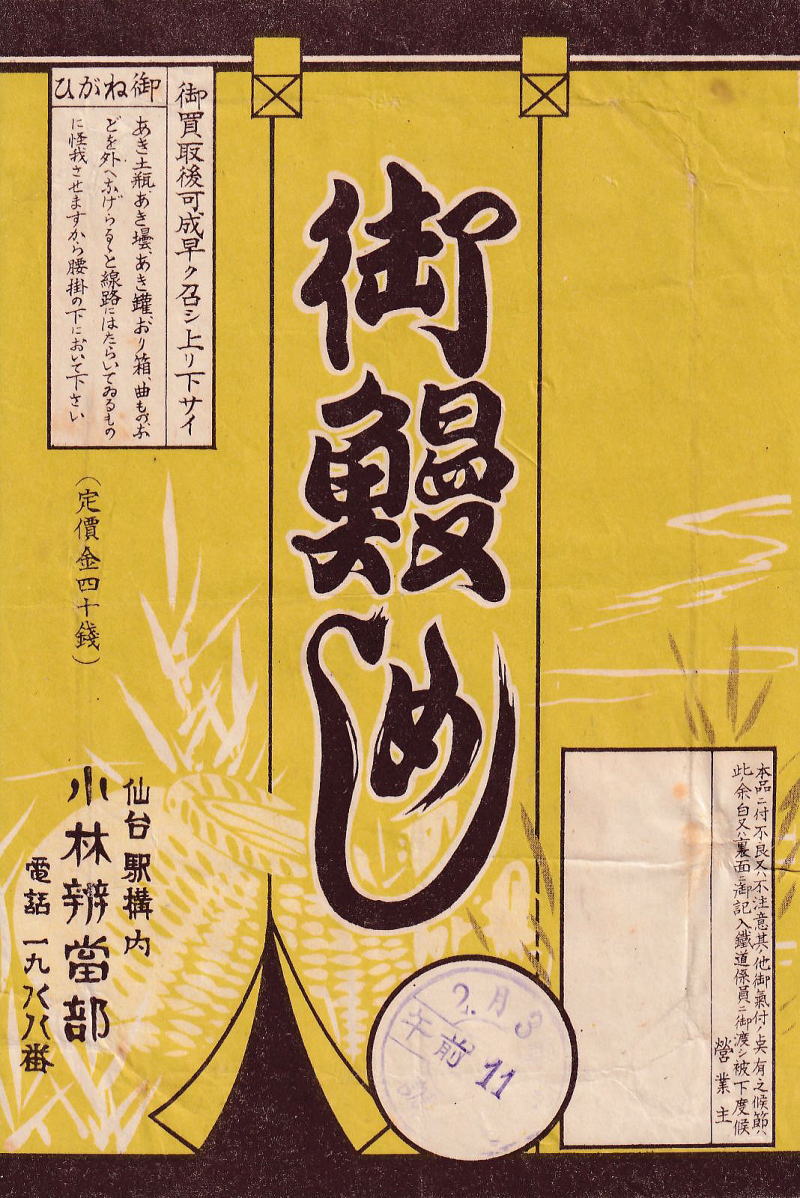 御鰻めし
御ねがひ
御買取後可成早ク召シ上リ下サイ
あき土瓶、あき壜、あき罐、おり箱、曲ものな
どを外へなげらるゝと線路にはたらいてゐるもの
に怪我させますから腰掛の下において下さい
(定價金四十錢)
仙台駅構内
小林辨當部
電話 一九八八番
2.月3
午前11
本品ニ付不良又ハ不注意其ノ他御氣付ノ点有之候節ハ
此ノ余白又ハ裏面ニ御記入鐵道係員ニ御渡シ被下度候
營業主